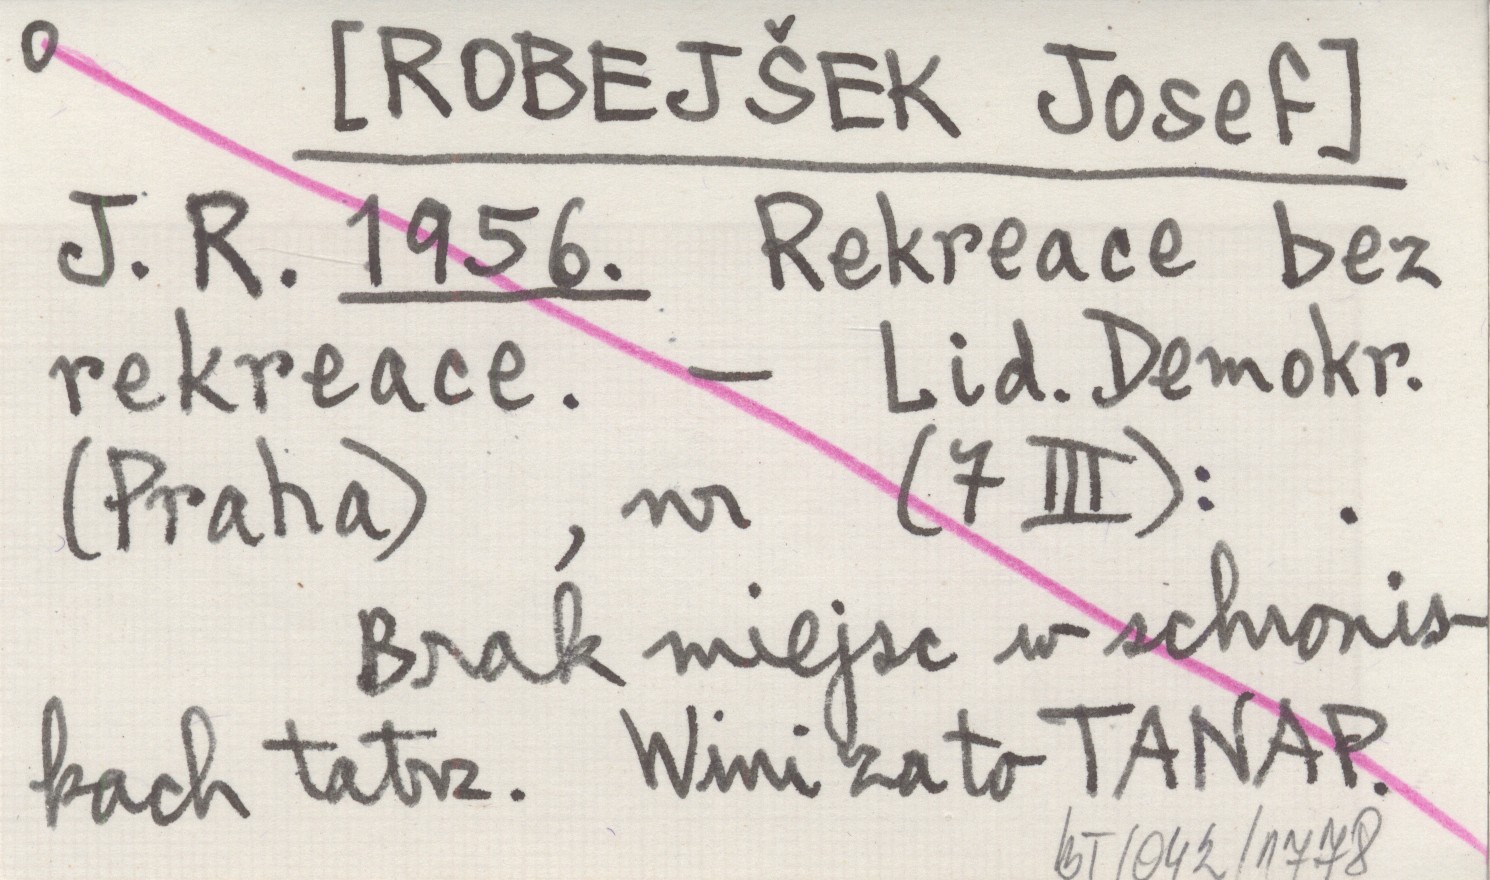 [ROBEJŠEK Josef]
J. R. 1956. Rekreace bez
rekreace. — Lid. Demokr.
(Praha) , nr (7 III): .
Brak miejsc w schronis-
kach tatrz. Wini za to TANAP.
BT/042/1778